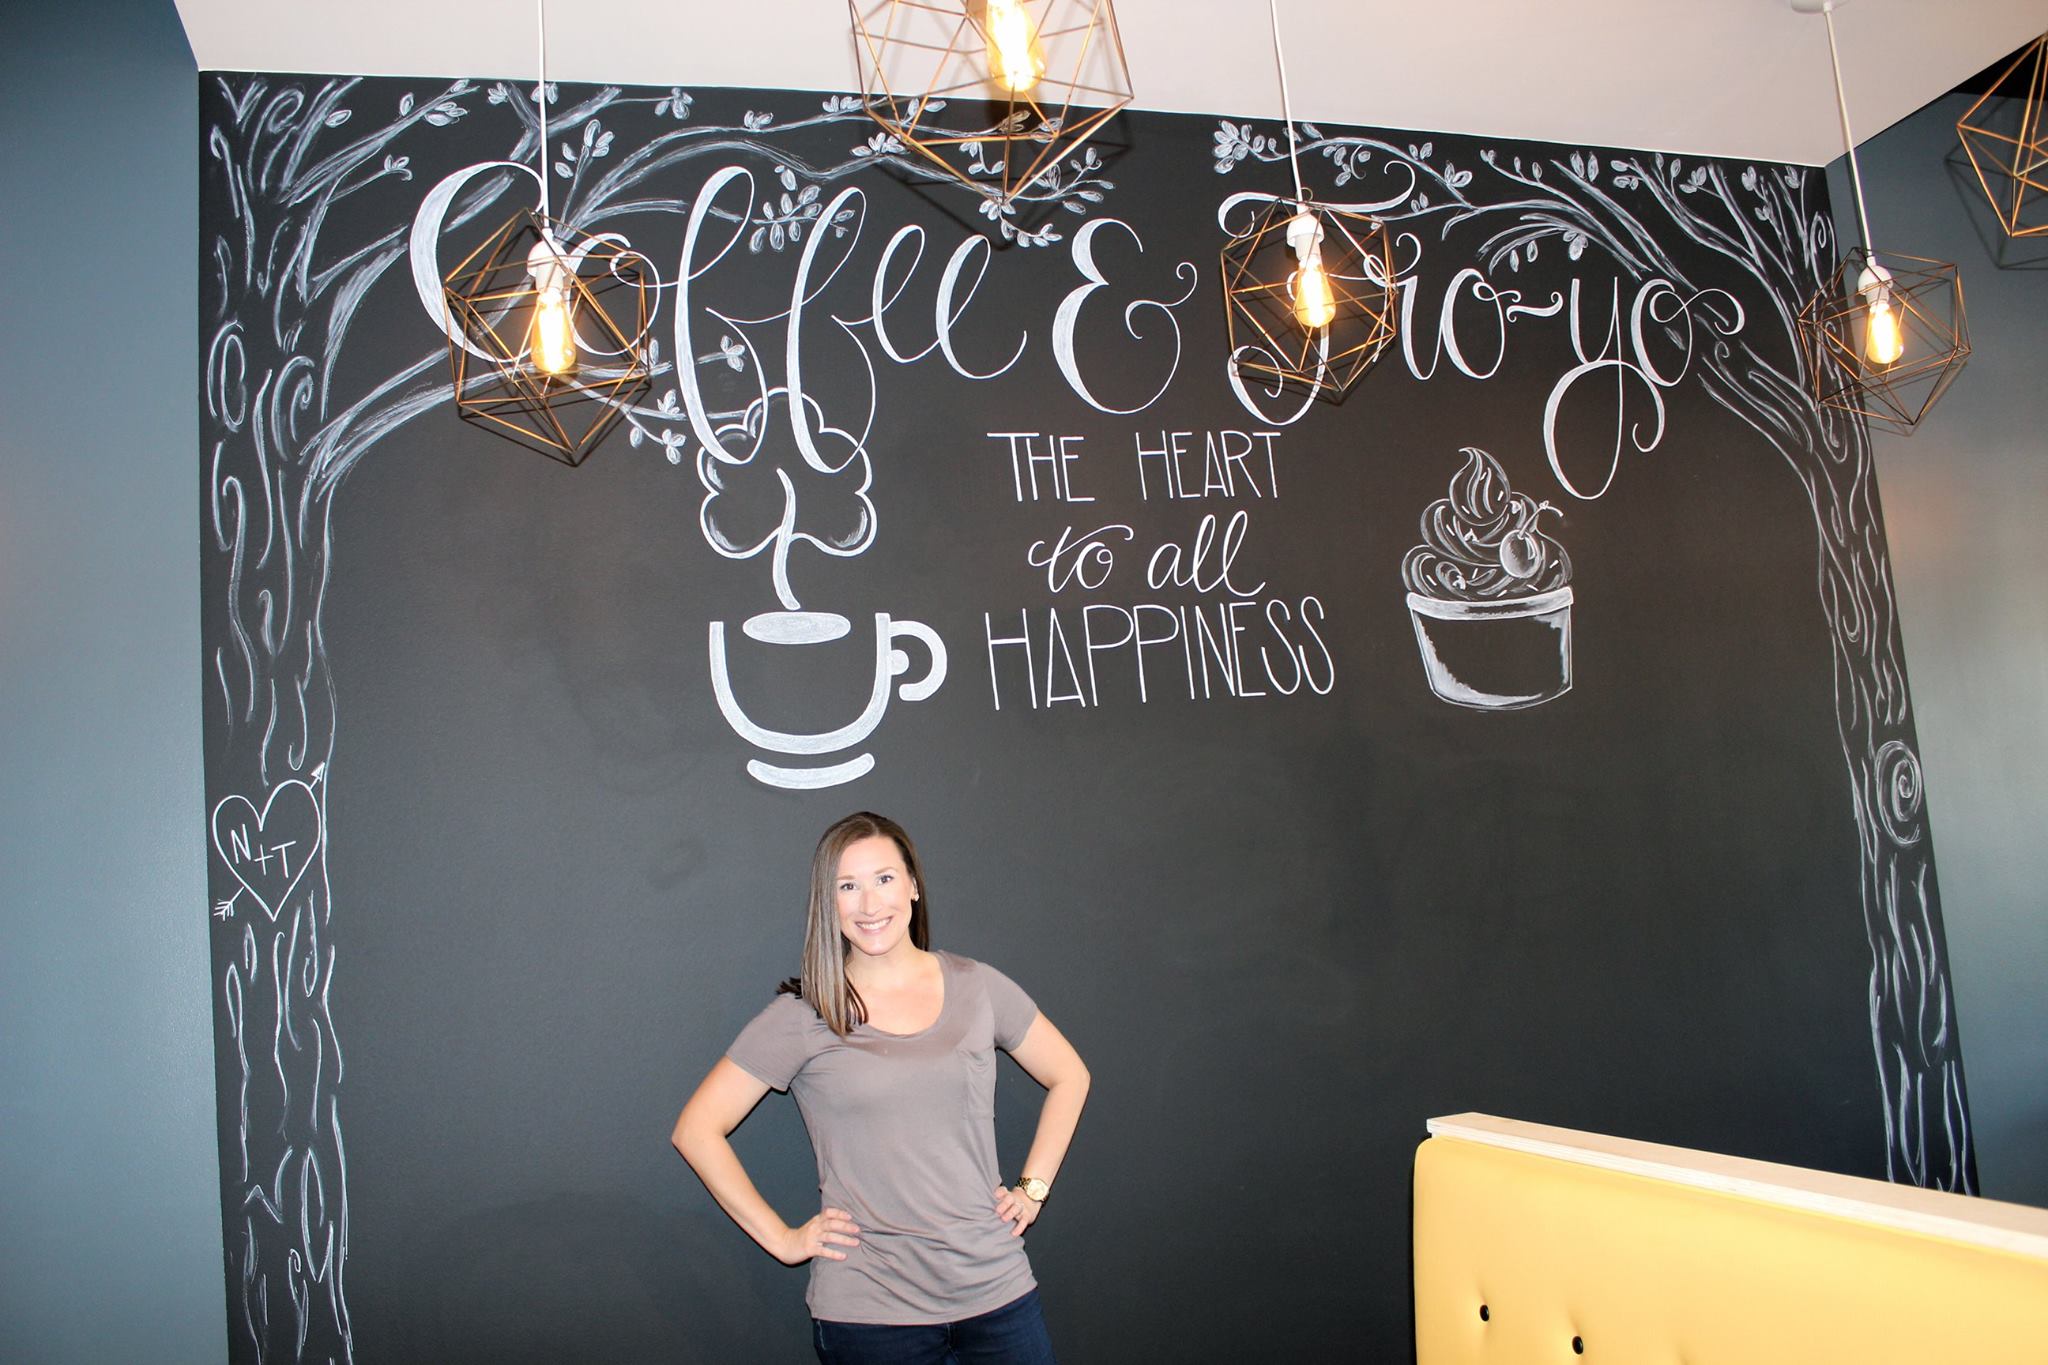 Coffee & Fro-yo
THE HEART
to all
HAPPINESS
N+T